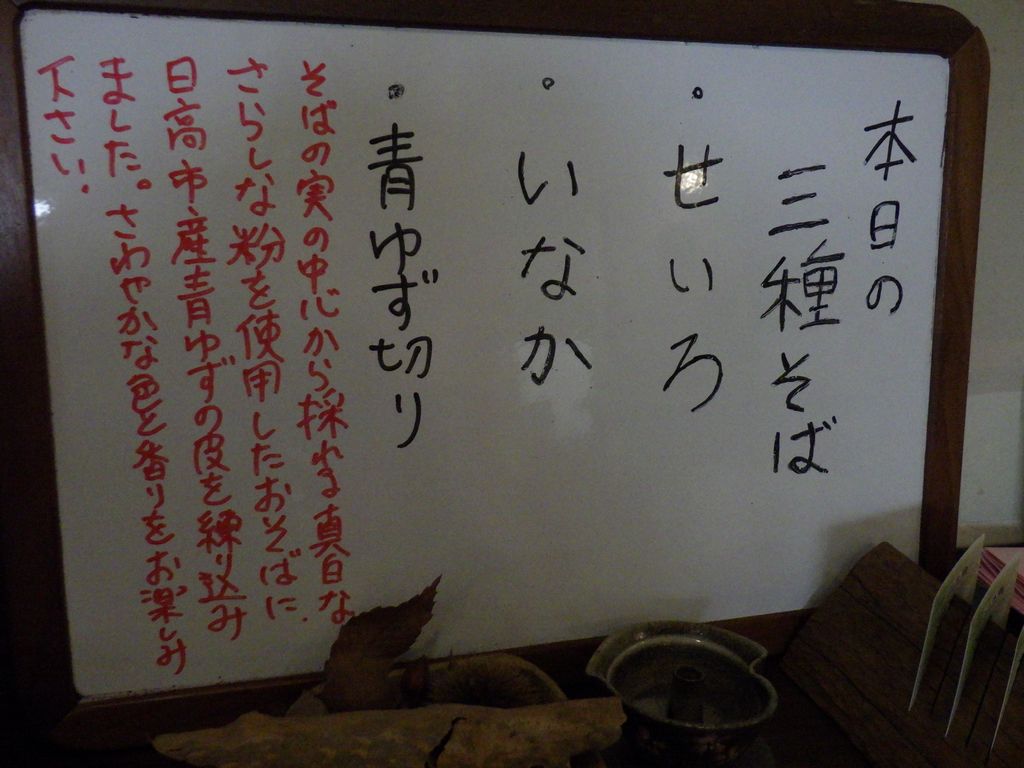 本日の
三種そば
・せいろ
・いなか
・青ゆず切り
そばの実の中心から採れる真白な
さらしな粉を使用したおそばに、
日高市産青ゆずの皮を練り込み
ました。さわやかな色と香りをお楽しみ
下さい。